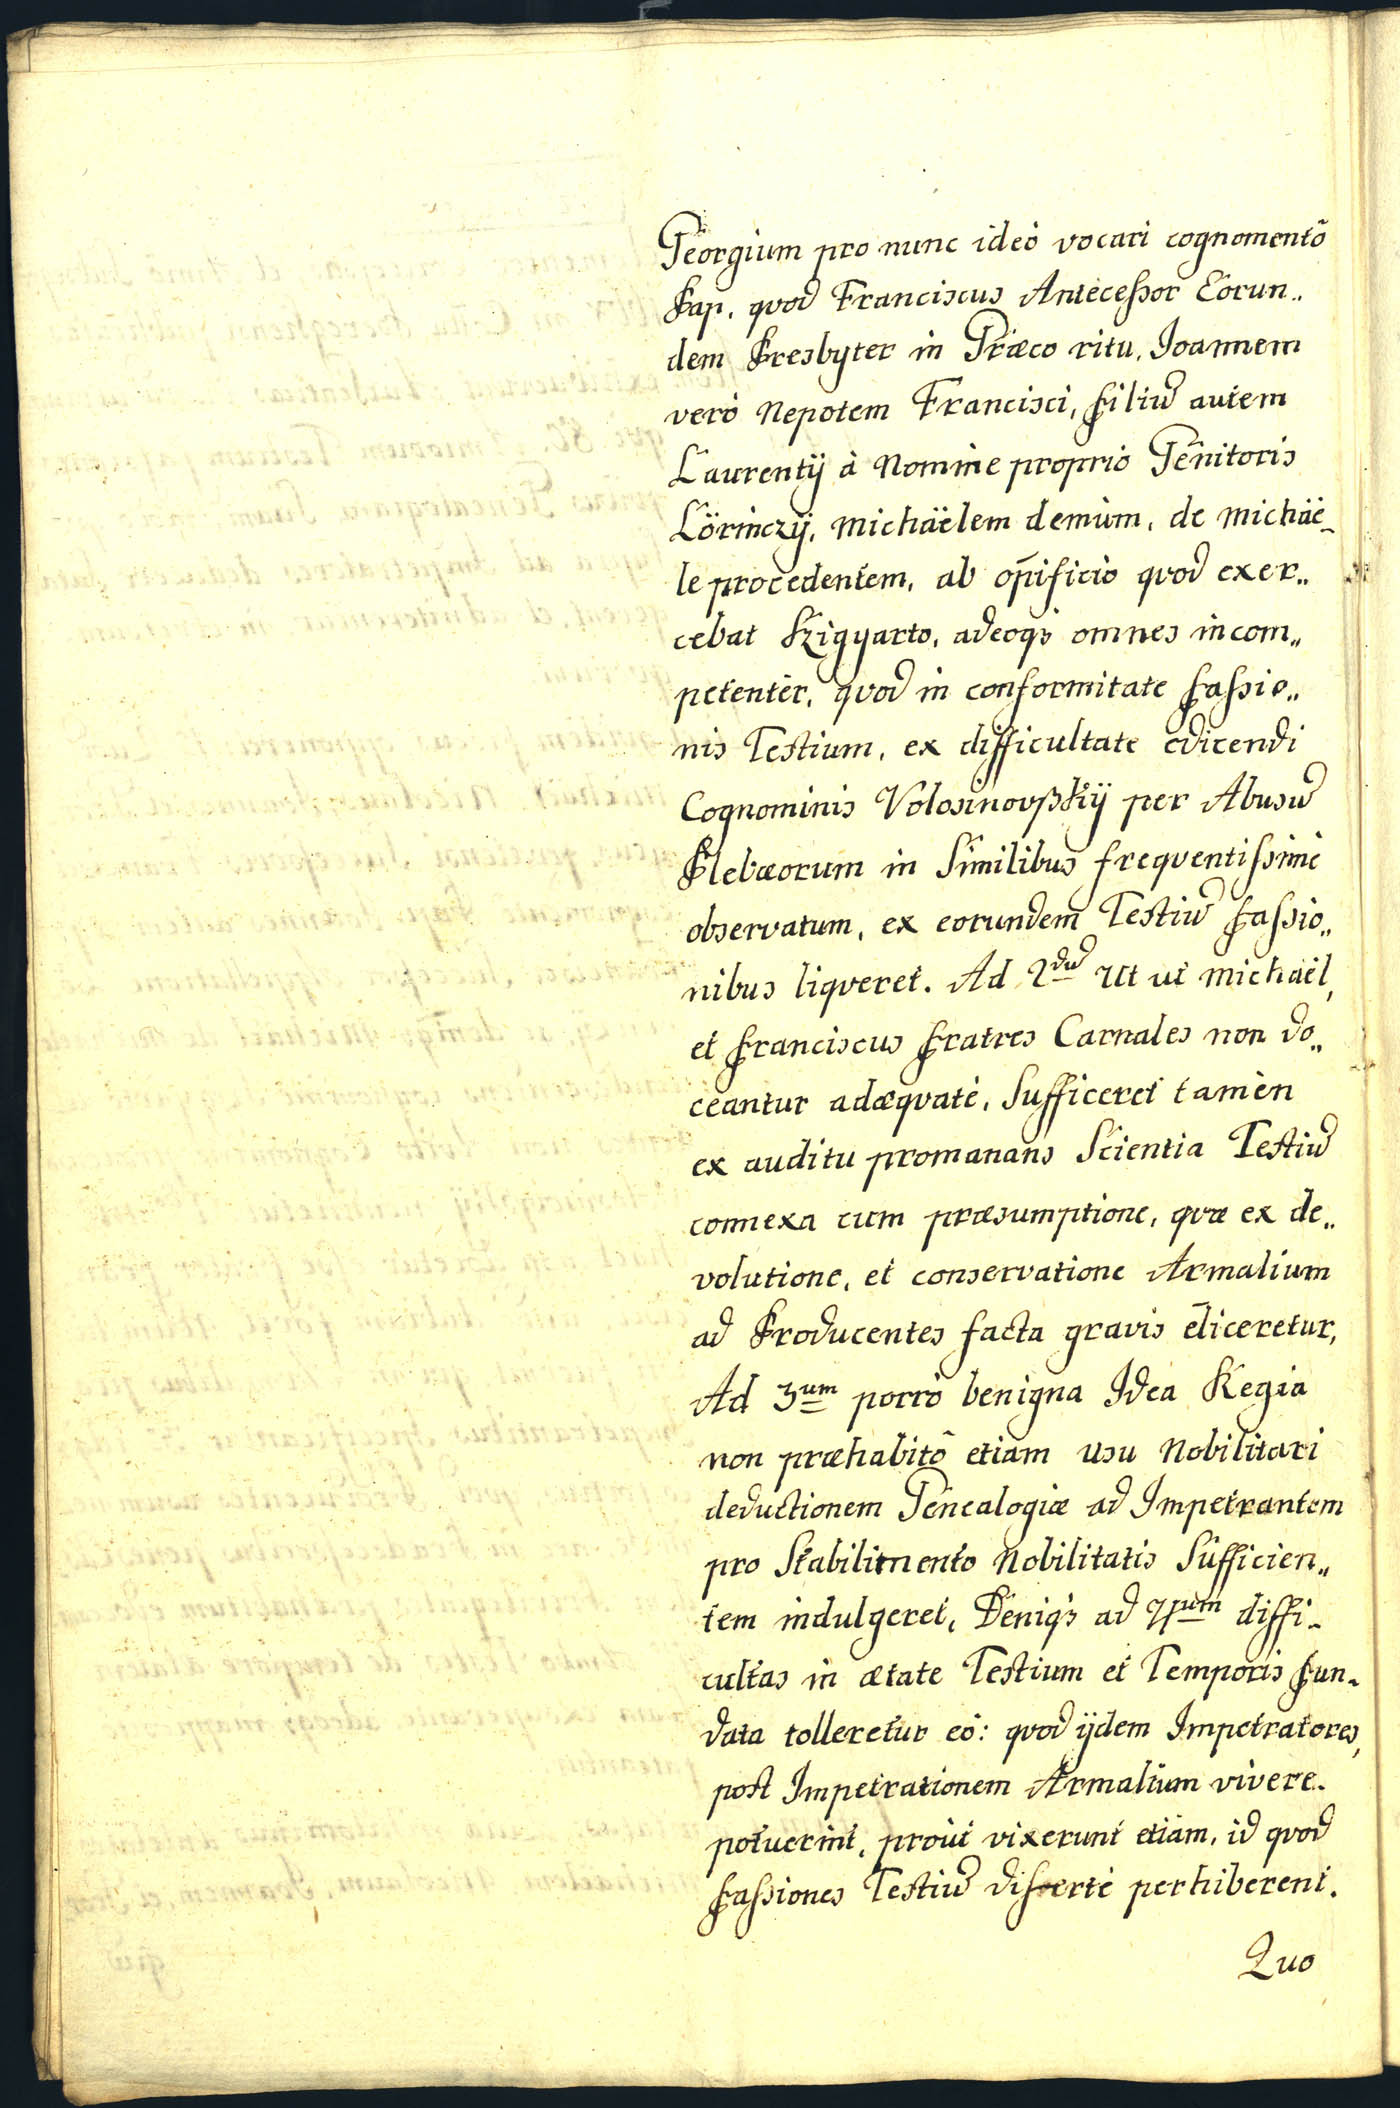 Georgium pro nunc ideò vocari cognomentõ
Pap, qvod Franciscus Antecessor Eorun„
dem Presbyter in Græco ritu, Joannem
verò Nepotem Francisci, Filiũ autem
Laurentÿ à Nomine propriò Genitoris
Lörinczÿ, Michäëlem demùm, de Michäë„
le procedentem, ab opificiò qvod exer„
cebat Szigyarto, adeoqз omnes incom„
petentèr, qvod in conformitate Fassio„
nis Testium, ex difficultate edicendi
Cognominis Volosinovßkÿ per Abusũ
Plebæorum in Similibus freqventissimè
observatum, ex eorundem Testiũ Fassio„
nibus liqveret. Ad 2dũ Ut ut Michäël,
et Franciscus Fratres Carnales non do„
ceantur adæqvatè, Sufficeret tamèn
ex auditu promanans Scientia Testiũ
connexa cum præsumptione, qvæ ex de„
volutione, et conservatione Armalium
ad Producentes facta gravis eliceretur,
Ad 3um porrò benigna Idea Regia
non præhabitô etiam usu Nobilitari
deductionem Genealogiæ ad Impetrantem
pro Stabilimento Nobilitatis Sufficien„
tem indulgeret, Deniqз ad 4um diffi„
cultas in ætate Testium et Temporis Fun„
data tolleretur eò: qvod ijdem Impetratores,
post Impetrationem Armalium vivere
potuerint, proùt vixerunt etiam, id qvod
Fassiones Testiũ disertè perhiberent.
Quo